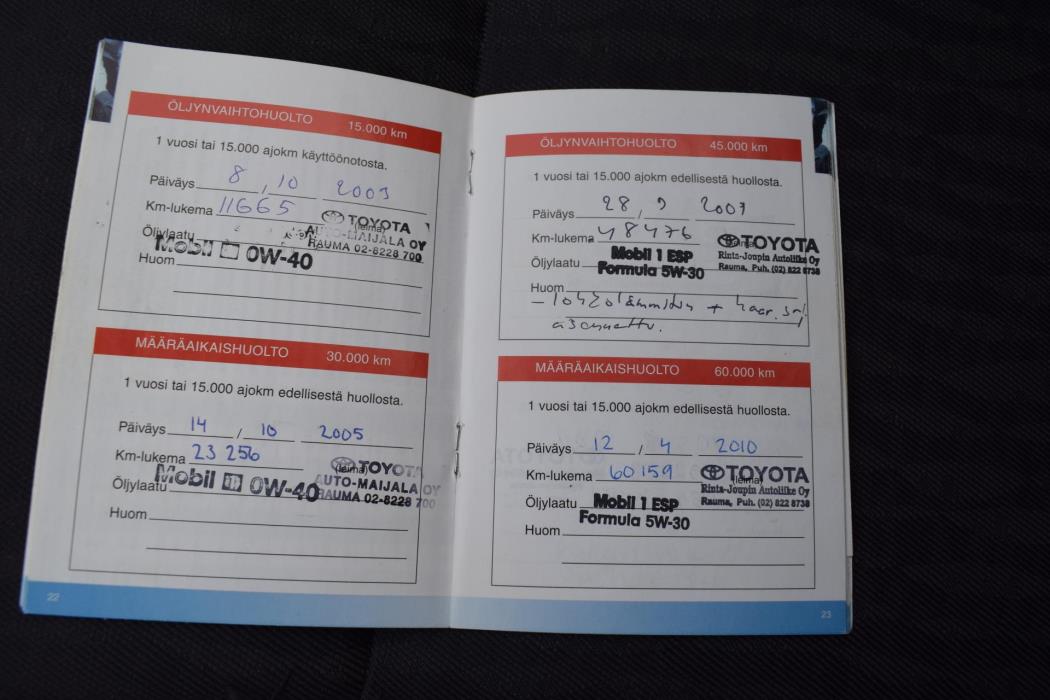 ÖLJYNVAIHTOHUOLTO 15.000 km
1 vuosi tai 15.000 ajokm käyttöönotosta.
Päiväys 8 / 10 2003
Km-lukema 11665
TOYOTA
(leima)
AUTO-MAIJALA OY
RAUMA 02-8228 700
Öljylaatu Mobil 1 0W-40
Huom
MÄÄRÄAIKAISHUOLTO 30.000 km
1 vuosi tai 15.000 ajokm edellisestä huollosta.
Päiväys 14 / 10 2005
Km-lukema 23 256
TOYOTA
(leima)
AUTO-MAIJALA OY
RAUMA 02-8228 700
Öljylaatu Mobil 1 0W-40
Huom
22
ÖLJYNVAIHTOHUOLTO 45.000 km
1 vuosi tai 15.000 ajokm edellisestä huollosta.
Päiväys 28 / 9
Km-lukema 48476
TOYOTA
(leima)
Rinta-Joupin Autoliike Oy
Rauma, Puh. (02) 822 8738
Öljylaatu Mobil 1 ESP
Formula 5W-30
Huom
asennettu.
MÄÄRÄAIKAISHUOLTO 60.000 km
1 vuosi tai 15.000 ajokm edellisestä huollosta.
Päiväys 12 / 4 2010
Km-lukema 60159
TOYOTA
(leima)
Rinta-Joupin Autoliike Oy
Rauma, Puh. (02) 822 8738
Öljylaatu Mobil 1 ESP
Formula 5W-30
Huom
23